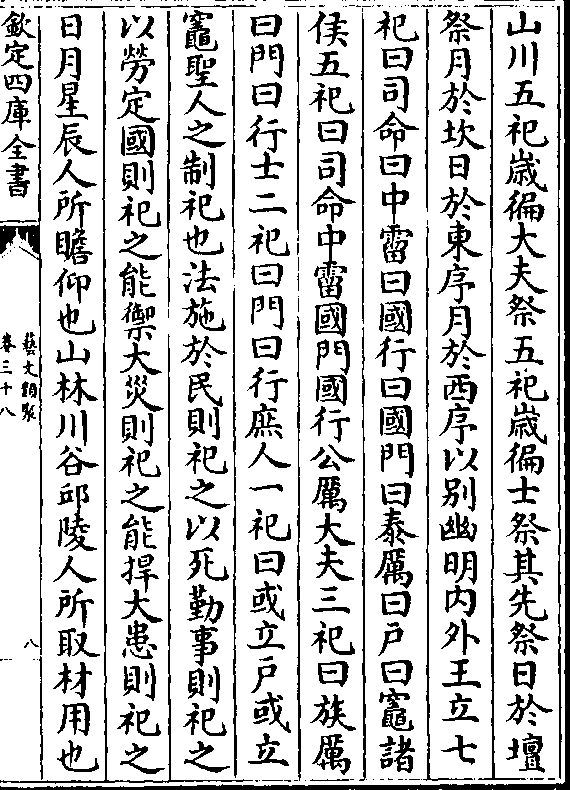 山川五祀歲徧大夫祭五祀歲徧士祭其先祭日於壇
祭月於坎日於東序月於西序以别幽明内外王立七
祀曰司命曰中霤曰國行曰國門曰泰厲曰戶曰竈諸
侯五祀曰司命中霤國門國行公厲大夫三祀曰族厲
曰門曰行士二祀曰門曰行庶人一祀曰或立戶或立
竈聖人之制祀也法施於民則祀之以死勤事則祀之
以勞定國則祀之能禦大災則祀之能捍大患則祀之
日月星辰人所瞻仰也山林川谷邱陵人所取材用也
欽定四庫全書
藝文類聚
卷三十八
八